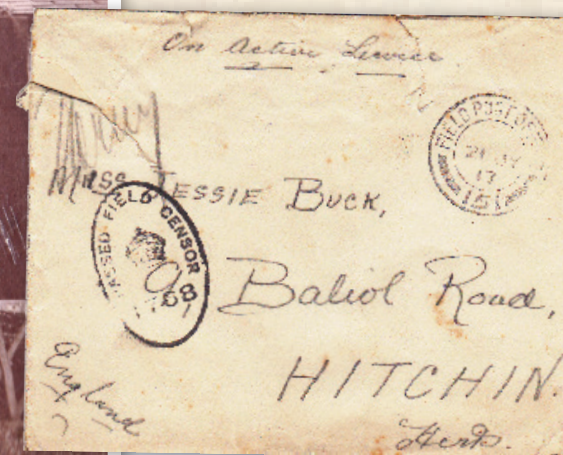 On Active Service
FIELD POST OF
17
MISS JESSIE BUCK,
PASSED FIELD CENSOR
Baliol Road,
HITCHIN.
Herts.
England